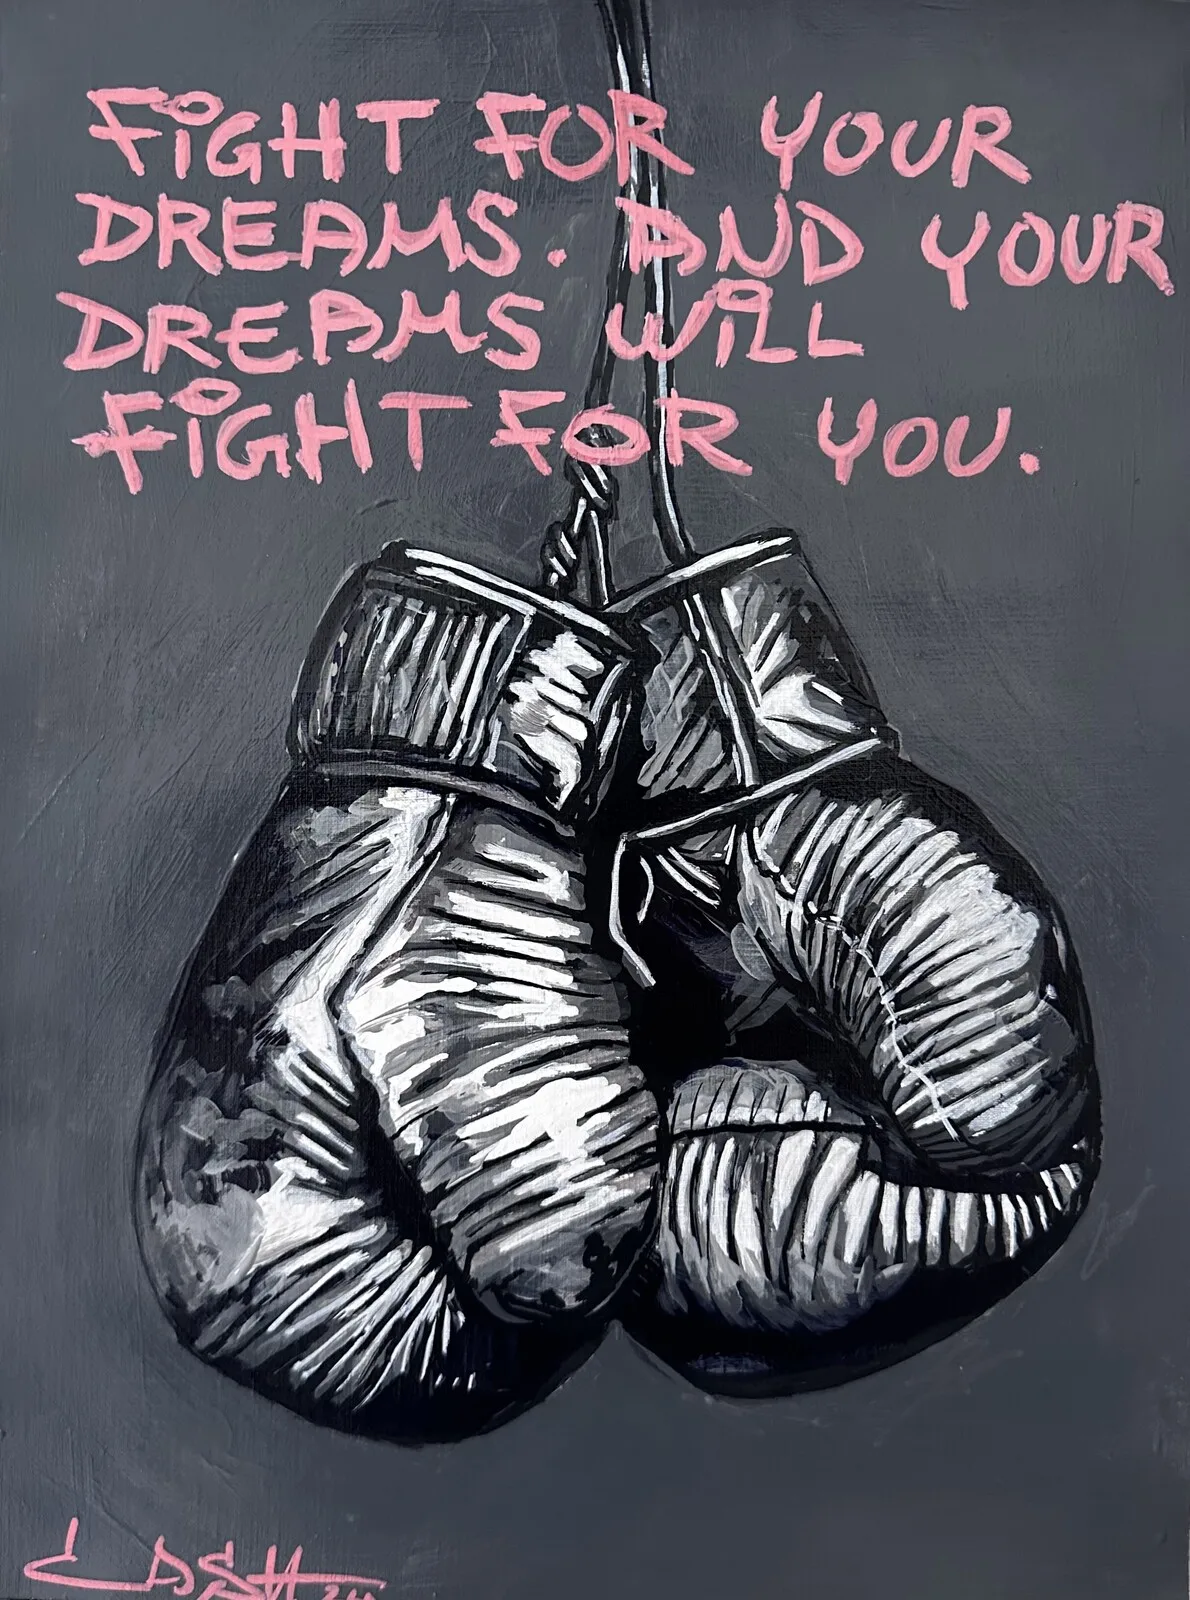 FiGHT FOR YOUR
DREAMS. AND YOUR
DREAMS WiLL
FiGHT FOR YOU.
CASH 24